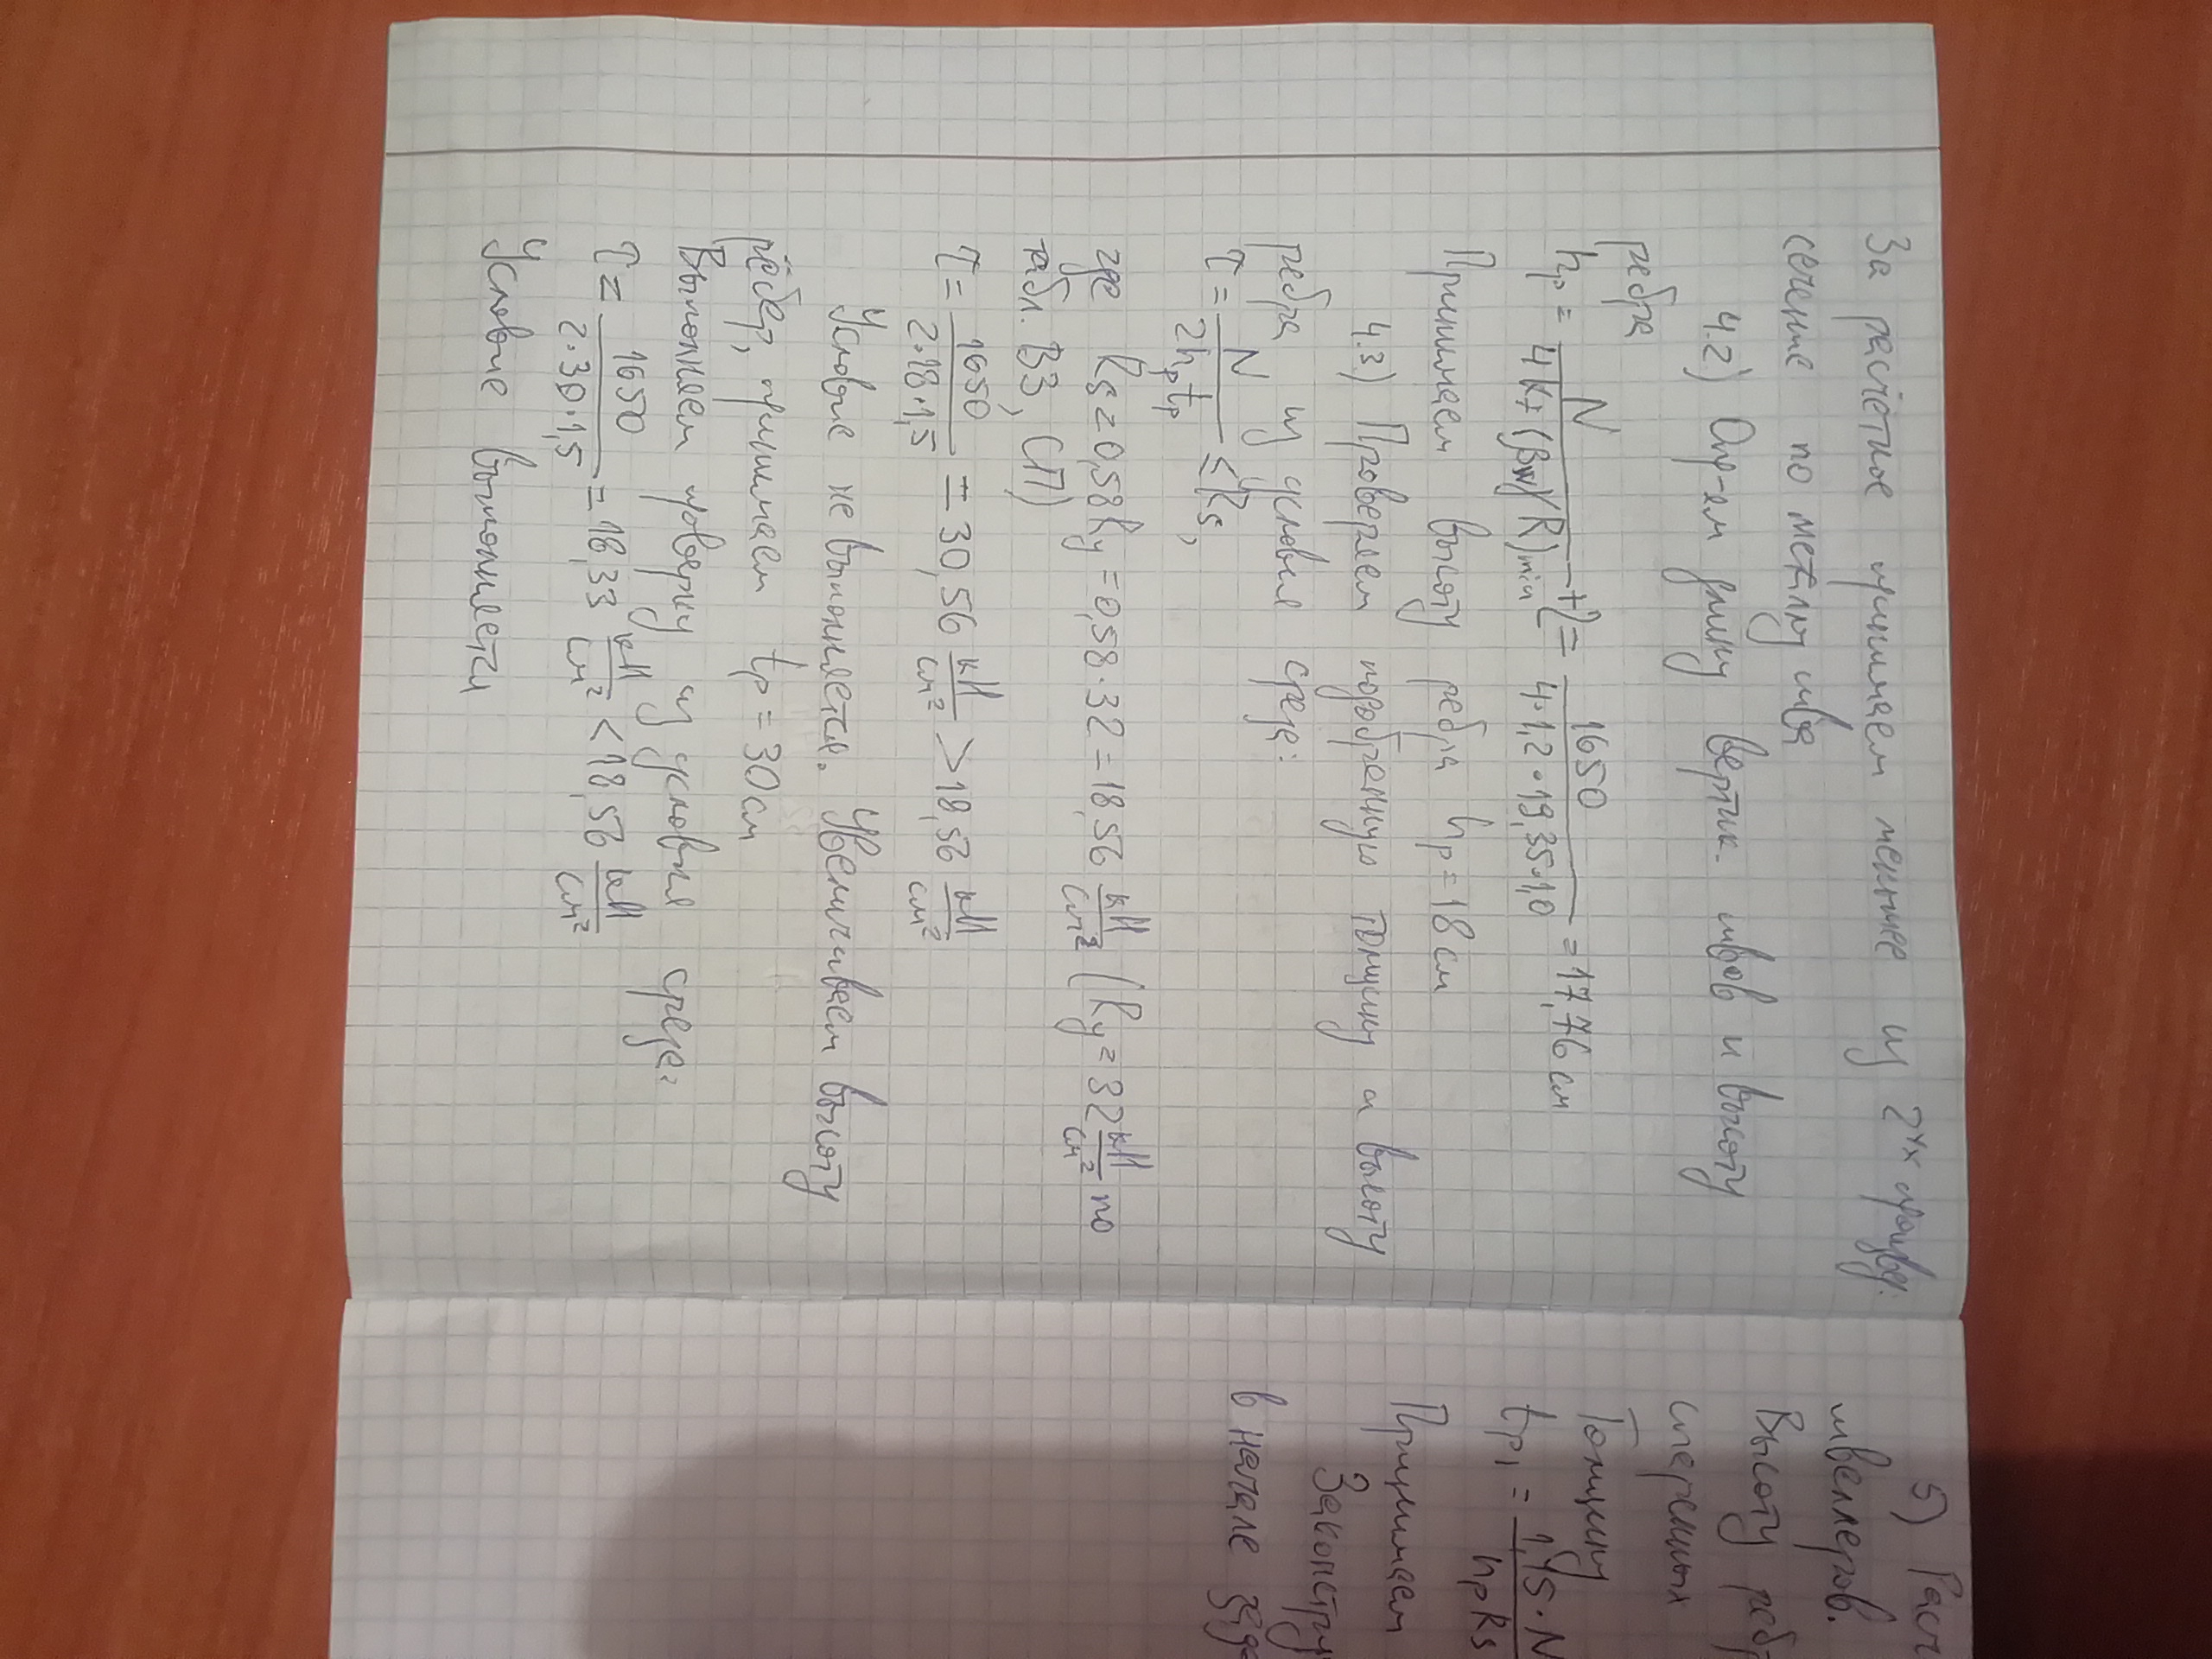 За расчётное принимаем меньшее из 2ух произвед.
сечение по металлу шва
4.2) Опр-ем длину вертик. швов и высоту
ребра
hр = N / 4kf(βwγR)min + 2 = 1650 / 4·1,2·19,35·1,0 = 17,76 см
Принимаем высоту ребра hр = 18 см
4.3) Проверяем подобренную толщину и высоту
ребра из условия срез:
τ = N / 2hрtр ≤ Rs,
где Rs = 0,58Ry = 0,58·32 = 18,56 кН/см² (Ry = 32 кН/см² по
табл. В3, СП)
τ = 1650 / 2·18·1,5 = 30,56 кН/см² > 18,56 кН/см²
Условие не выполняется. Увеличиваем высоту
рёбер, принимаем tр = 30 см
Выполняем проверку из условия срез:
τ = 1650 / 2·30·1,5 = 18,33 кН/см² < 18,56 кН/см²
Условие выполняется
5) Расч
швеллеров.
Высоту реб
спаренных
Толщину
tр1 = 1,5·N / hрRs
Принимаем
Законстру
в начале